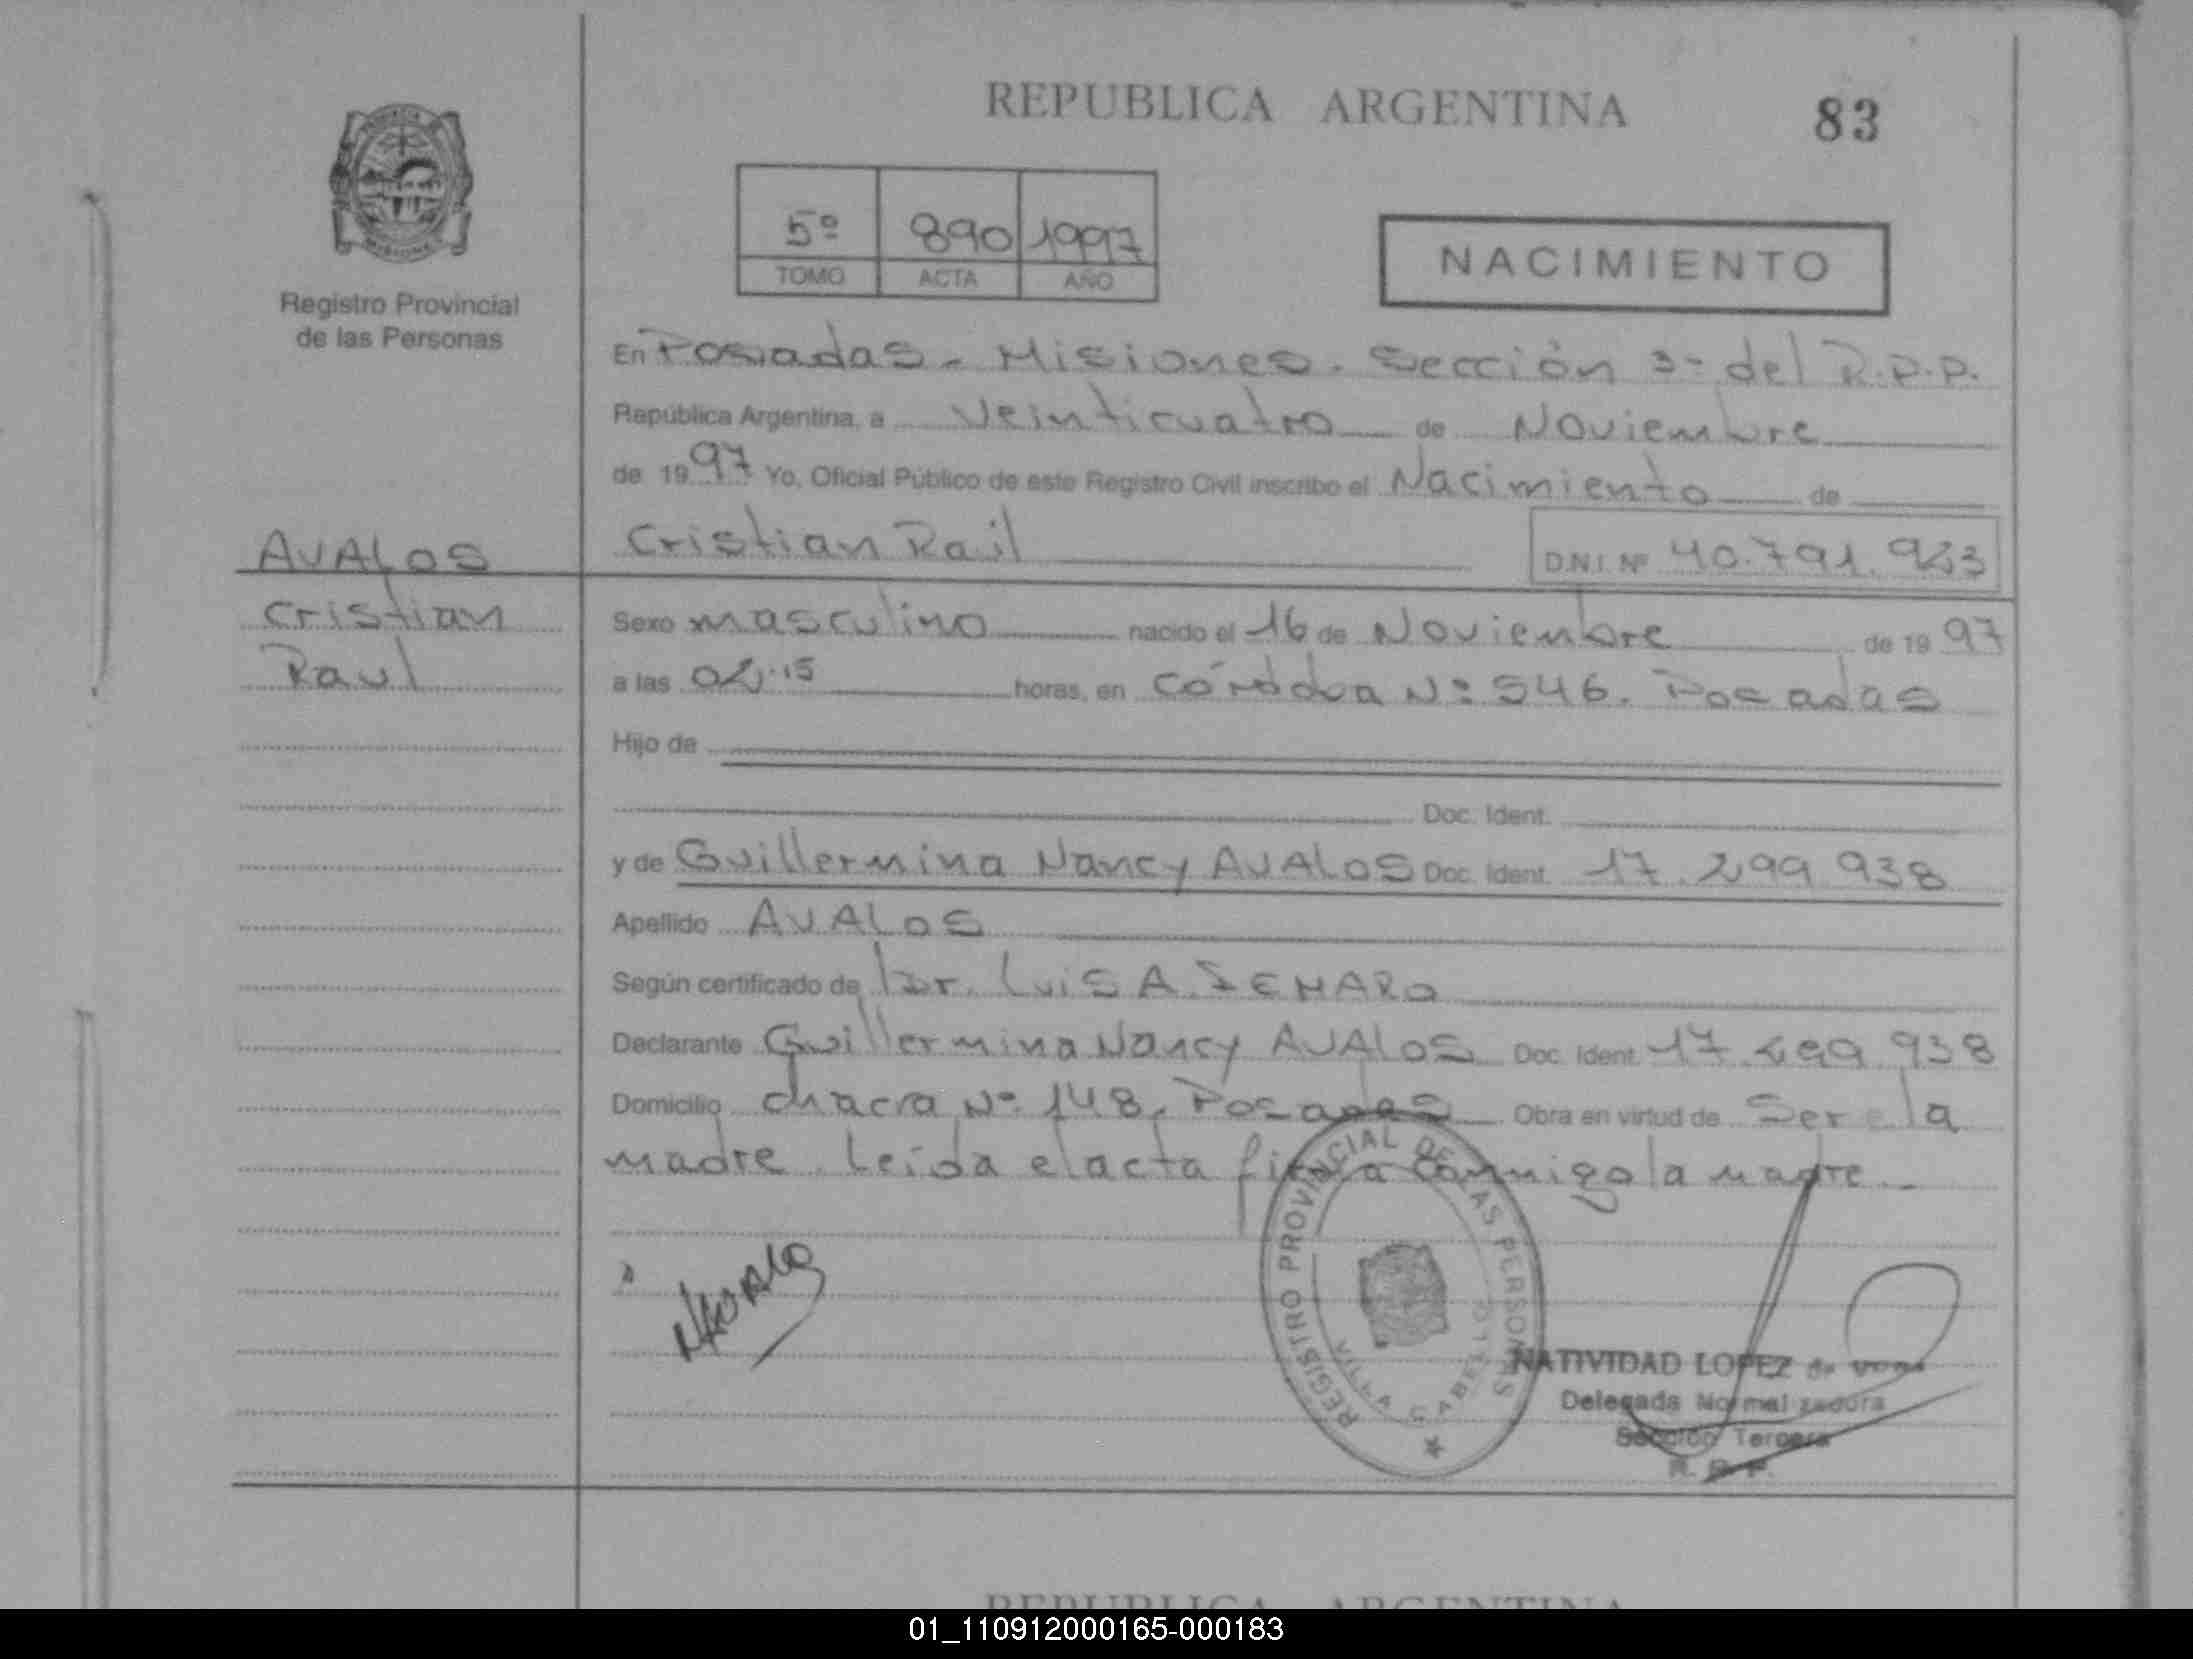 REPUBLICA ARGENTINA
83
5º 890 1997
TOMO ACTA AÑO
NACIMIENTO
Registro Provincial
de las Personas
En Posadas - Misiones. Sección 3ª del R.P.P.
República Argentina, a Veinticuatro de Noviembre
de 1997 Yo, Oficial Público de este Registro Civil inscribo el Nacimiento de
AVALOS
Cristian
Raul
Cristian Raul
D.N.I. Nº 40.791.923
Sexo masculino nacido el 16 de Noviembre de 1997
a las 02.15 horas, en Córdoba Nº 546. Posadas
Hijo de
Doc. Ident.
y de Guillermina Nancy AVALOS Doc. Ident. 17.299.938
Apellido AVALOS
Según certificado de Dr. Luis A.
Declarante Guillermina Nancy AVALOS Doc. Ident. 17.299.938
Domicilio chacra Nº 148, Posadas Obra en virtud de Ser la
madre. Leída el acta firma conmigo la madre.-
REGISTRO PROVINCIAL DE LAS PERSONAS
VILLA CABELLO
NATIVIDAD LOPEZ de
Delegada Normalizadora
Sección Tercera
R. P. P.
REPUBLICA ARGENTINA
01_110912000165-000183